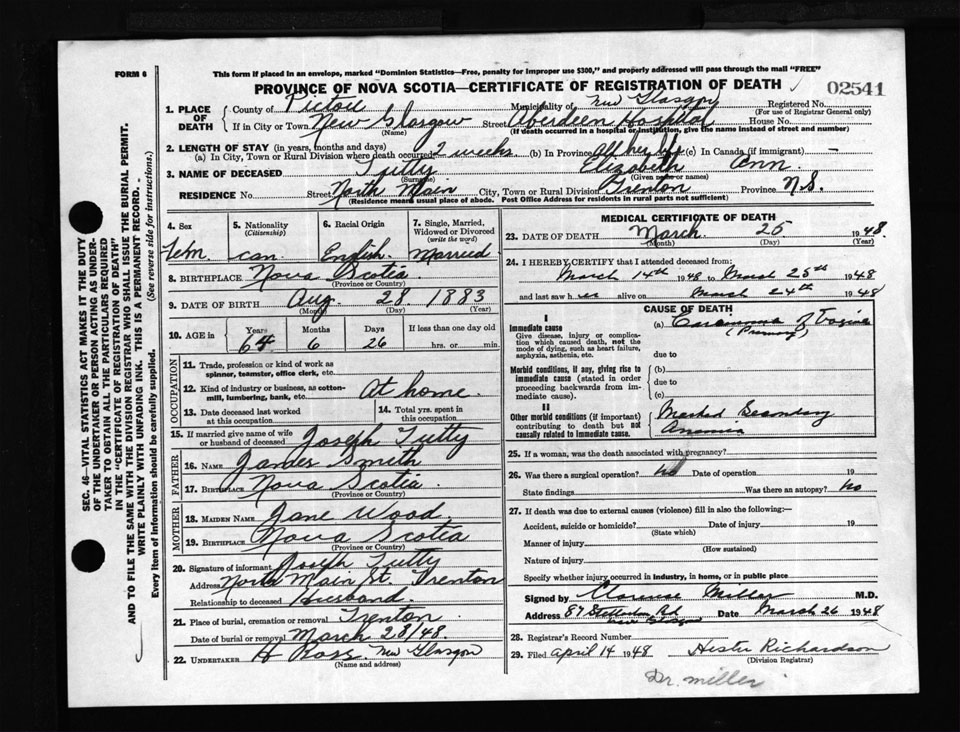 FORM 6
This form if placed in an envelope, marked "Dominion Statistics—Free, penalty for improper use $300," and properly addressed will pass through the mail "FREE"
PROVINCE OF NOVA SCOTIA—CERTIFICATE OF REGISTRATION OF DEATH
02541
1. PLACE OF DEATH County of Pictou Municipality of New Glasgow Registered No.
(For use of Registrar General only)
If in City or Town New Glasgow Street Aberdeen Hospital House No.
(Name) (If death occurred in a hospital or institution, give the name instead of street and number)
2. LENGTH OF STAY (in years, months and days)
(a) In City, Town or Rural Division where death occurred 2 weeks (b) In Province All her life (c) In Canada (if immigrant) —
3. NAME OF DECEASED Tutty Elizabeth Ann
(Surname) (Given name or names)
RESIDENCE No. Street North Main City, Town or Rural Division Trenton Province N.S.
(Residence means usual place of abode. Post Office Address for residents in rural parts not sufficient)
4. Sex 5. Nationality (Citizenship) 6. Racial Origin 7. Single, Married, Widowed or Divorced (write the word)
Fem. Can. English Married
8. BIRTHPLACE Nova Scotia
(Province or Country)
9. DATE OF BIRTH Aug. 28. 1883
(Month) (Day) (Year)
10. AGE in Years Months Days If less than one day old
64 6 26 hrs. or min.
OCCUPATION
11. Trade, profession or kind of work as spinner, teamster, office clerk, etc.
12. Kind of industry or business, as cotton-mill, lumbering, bank, etc. At home.
13. Date deceased last worked at this occupation
14. Total yrs. spent in this occupation
15. If married give name of wife or husband of deceased Joseph Tutty
FATHER
16. NAME James Smith
17. BIRTHPLACE Nova Scotia.
(Province or Country)
MOTHER
18. MAIDEN NAME Jane Wood.
19. BIRTHPLACE Nova Scotia
(Province or Country)
20. Signature of informant Joseph Tutty
Address North Main St. Trenton
Relationship to deceased Husband.
21. Place of burial, cremation or removal Trenton
Date of burial or removal March 28/48.
22. UNDERTAKER H Ross. New Glasgow
(Name and address)
MEDICAL CERTIFICATE OF DEATH
23. DATE OF DEATH March 25 1948.
(Month) (Day) (Year)
24. I HEREBY CERTIFY that I attended deceased from:
March 14th 1948 to March 25th 1948
and last saw her alive on March 24th 1948
CAUSE OF DEATH
I
Immediate cause
Give disease, injury or complication which caused death, not the mode of dying, such as heart failure, asphyxia, asthenia, etc.
(a) Carcinoma of Vagina
(Primary)
due to
Morbid conditions, if any, giving rise to immediate cause (stated in order proceeding backwards from immediate cause).
(b)
due to
(c)
II
Other morbid conditions (if important) contributing to death but not causally related to immediate cause.
Marked Secondary
Anemia
25. If a woman, was the death associated with pregnancy?
26. Was there a surgical operation? no Date of operation 19
State findings Was there an autopsy? no
27. If death was due to external causes (violence) fill in also the following:—
Accident, suicide or homicide? Date of injury 19
(State which)
Manner of injury
(How sustained)
Nature of injury
Specify whether injury occurred in industry, in home, or in public place
Signed by Clarence Miller M.D.
Address 87 Stellarton Rd Date March 26 1948
New Glasgow
28. Registrar's Record Number
29. Filed April 14 1948 Hester Richardson
(Division Registrar)
Dr. Miller
SEC. 46—VITAL STATISTICS ACT MAKES IT THE DUTY
OF THE UNDERTAKER OR PERSON ACTING AS UNDER-
TAKER TO OBTAIN ALL THE PARTICULARS REQUIRED
IN THE "CERTIFICATE OF REGISTRATION OF DEATH"
AND TO FILE THE SAME WITH THE DIVISION REGISTRAR WHO SHALL ISSUE THE BURIAL PERMIT.
WRITE PLAINLY WITH UNFADING INK. THIS IS A PERMANENT RECORD.
Every item of information should be carefully supplied. (See reverse side for instructions.)